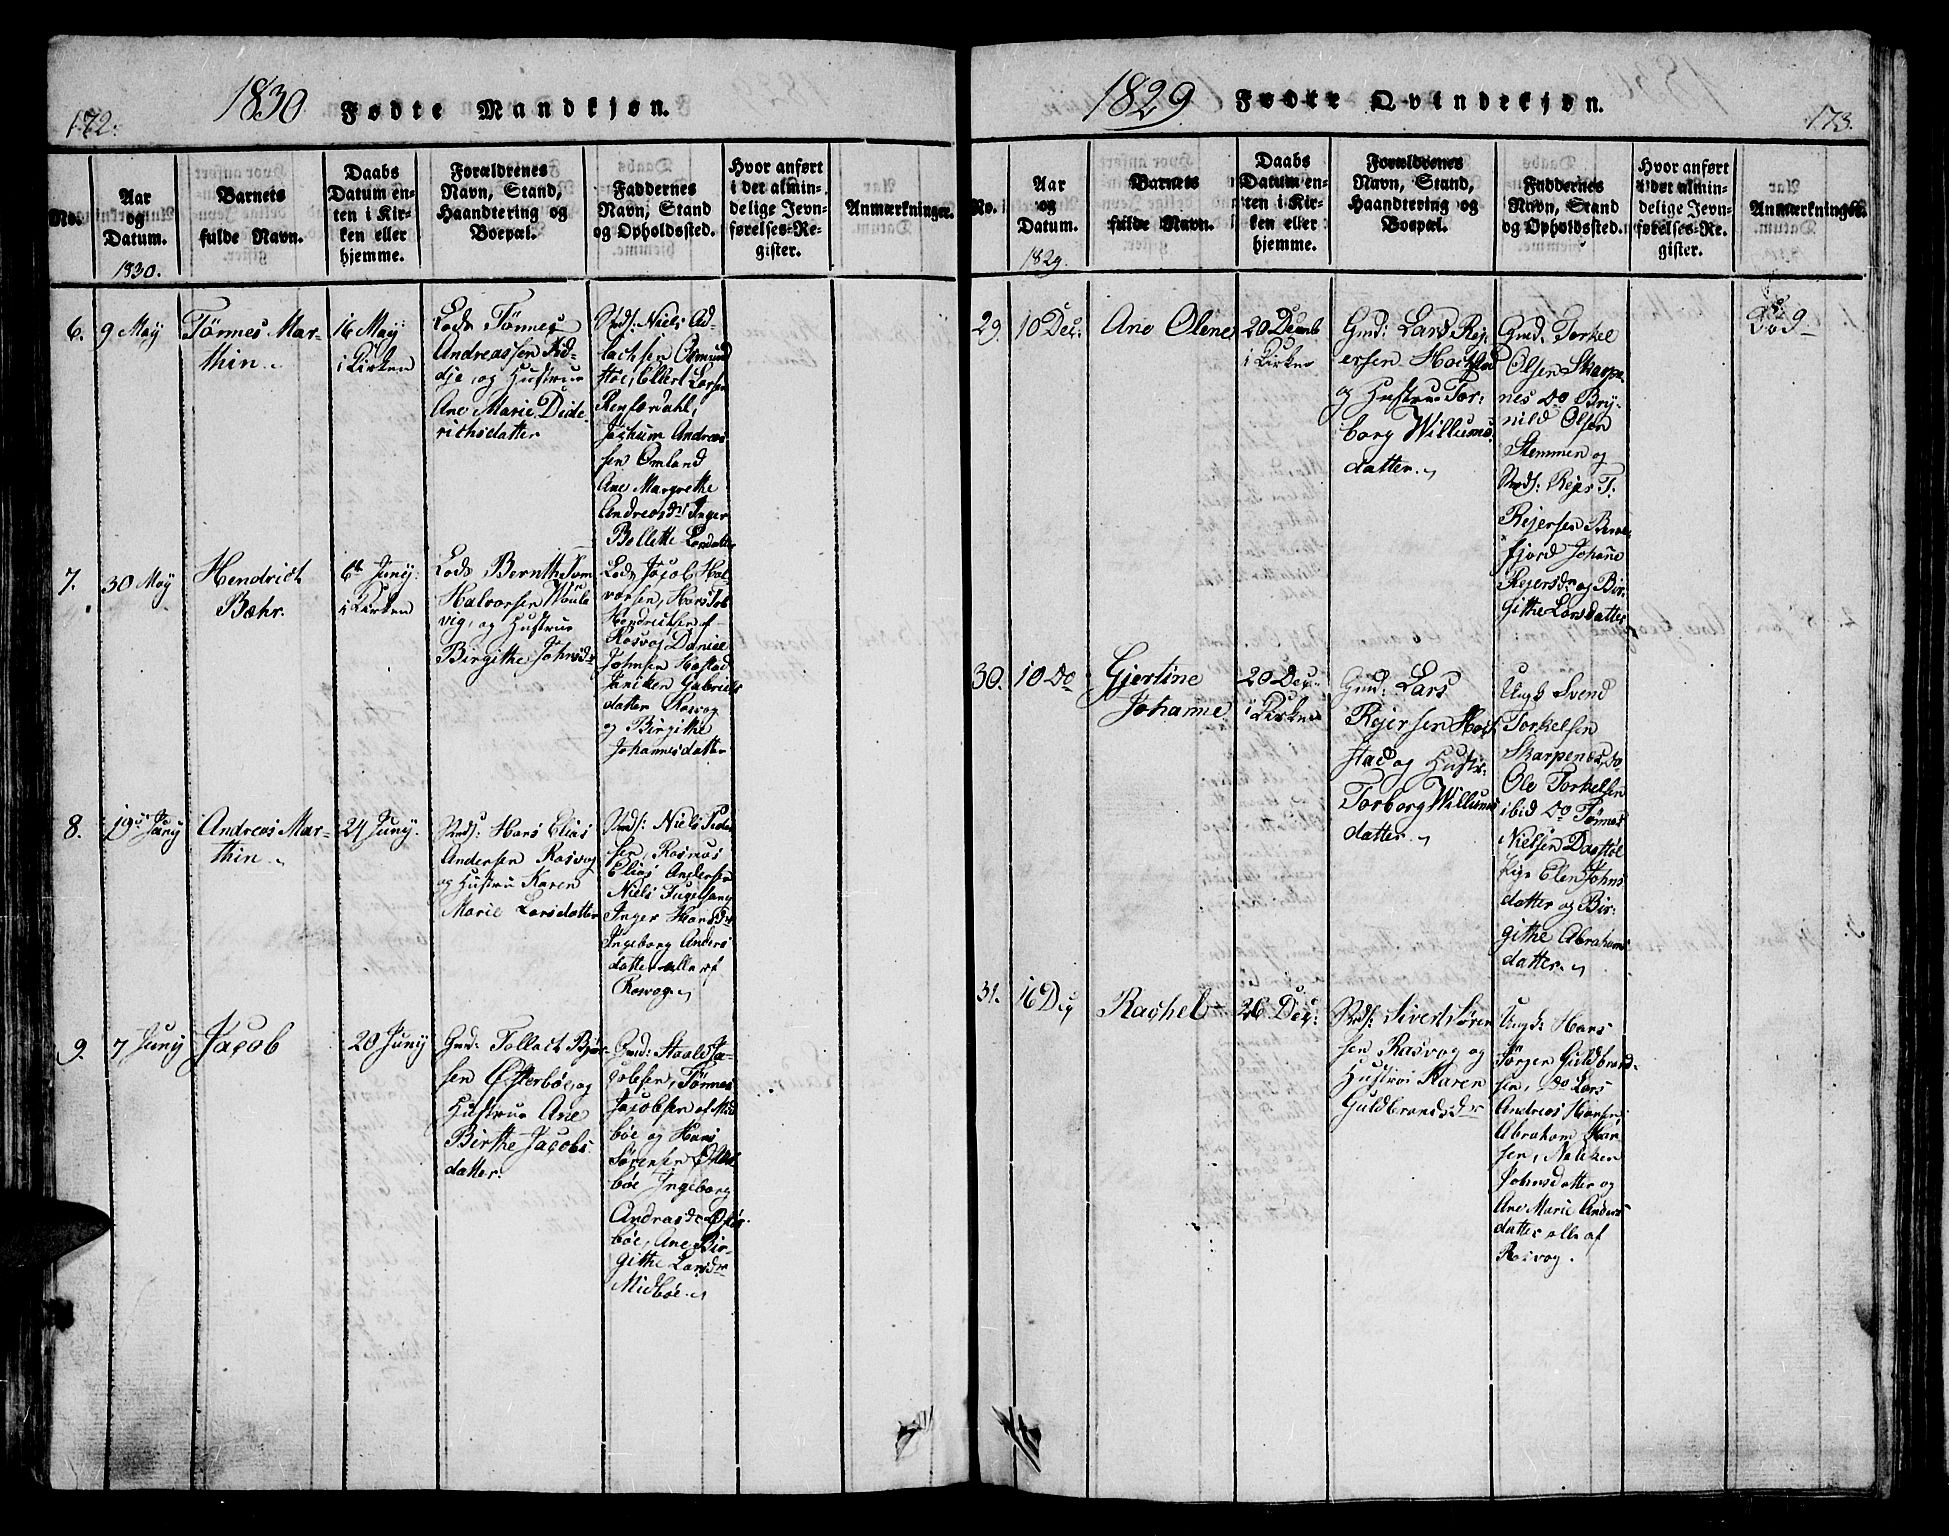 172.
1830 Fødte Mandkjøn.
No.
Aar
og
Datum.
1830.
Barnets
fulde Navn.
Daabs
Datum en-
ten i Kir-
ken eller
hjemme.
Forældrenes
Navn, Stand,
Haandtering og
Boepæl.
Faddernes
Navn, Stand
og Opholdssted.
Hvor anført
i det almin-
delige Jevn-
førelses-Re-
gister.
Anmærkninger.
6.
9 May
Tönnes Mar-
thin
16 May
i Kirken
Lods Tönnes
Andreassen
og Hustrue
Ane Marie Dide
richsdatter
Niels Ad-
Ellert Larsen
Jochum Andreas
sen Omland
Ane Margrethe
Andreasdr Inger
Bollette Larsdatter
7.
30 May
Hendrich
Bæhr.
6te Juny
i Kirken
Lods Bernth Tvm
Halvorsen
vig, og Hustrue
Birgithe Johnsdr
Lods Jacob Hal
vorsen, Hans Job
Hendrichsen af
Rosvog Daniel
Johnsen
Janiken Gabriels
datter Rosvog
og Birgithe
Johannesdatter
8.
19de Juny
Andreas Mar-
thin
24 Juny.
Hans Elias
Andersen Rosvog
og Hustrue Karen
Marie Larsdatter
Niels Peder
sen, Rasmus
Elias Andersen
Niels Fugelsang
Inger Hansdr
Ingeborg Anders
datter alle af
Rosvog
9.
7 Juny
Jacob
20 Juny
Gmd: Tollach Bjør
sen Østerbøe og
Hustrue Ane
Birthe Jacobs
datter.
Gmd: Staale Ja-
cobsen, Tönnes
Jacobsen af Mid
bøe og Hans
Sörensen Øster
bøe Ingeborg
Andreasdr Øster
bøe, Ane Bir-
githe Larsdr
Midbøe
1829 Fødte Qvindekjøn.
173.
No.
Aar
og
Datum.
1829.
Barnets
fulde Navn.
Daabs
Datum en-
ten i Kir-
ken eller
hjemme.
Forældrenes
Navn, Stand,
Haandtering og
Boepæl.
Faddernes
Navn, Stand
og Opholdssted.
Hvor anført
i det almin-
delige Jevn-
førelses-Re-
gister.
Anmærkninger.
29.
10 Dec:
Ane Olene
20 Decemb
i Kirken
Gmd: Lars Rej
ersen Hochstad
og Hustrue Tor:
borg Willums
datter.
Gmd: Torkel
Olsen Skarpe
nes Do Bry-
nild Olsen
Stemmen og
Rejer T:
Rejersen
fjord Johane
Rejersdr og Bir
githe Larsdatter
30.
10 Do
Gjertine
Johanne
20 Dec.
i Kirken
Gmd: Lars
Rejersen Hoch
stad og Hustr:
Torborg Willums
datter.
Ungk Svend
Torkelsen
Skarpenes, Do
Ole Torkelsen
ibid Do Tönnes
Nielsen
Pige Elen Johns
datter og Bir:
githe Abrahams
datter.
31.
16 Dec
Rachel
26 Dec:
Sivert Sören
sen Rasvog og
Hustrue Karen
Guldbrandsdr
Ungk: Hans
Jörgen Guldbrand-
sen, Do Lars
Andreas Hansen
Abraham
sen,
Johnsdatter og
Ane Marie Anders
datter alle af
Rosvog.